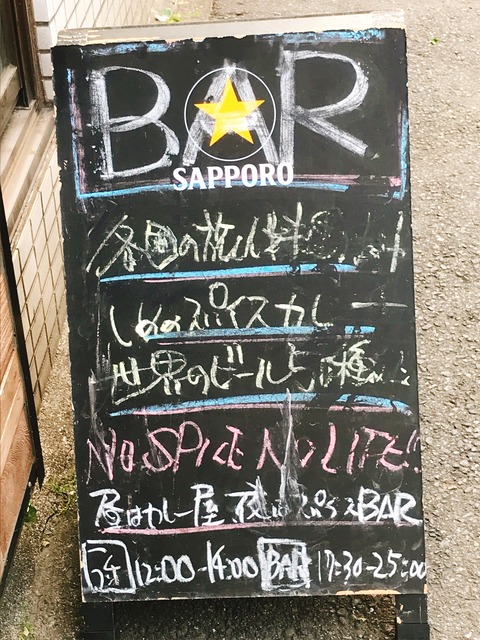 BAR
SAPPORO
各国の旅人料
スパイスカレー
世界のビール
NO SPICE NO LIFE!!
昼はカレー屋 夜はスパイスBAR
12:00-14:00 BAR 17:30-25:00